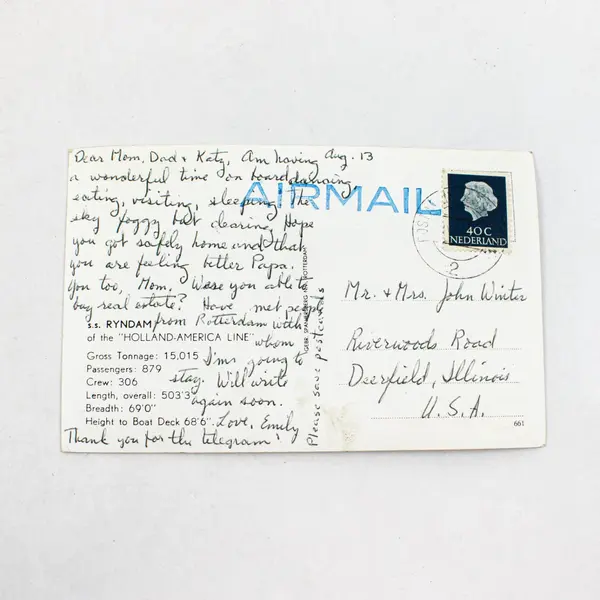 Dear Mom, Dad & Katz, Am having Aug. 13
a wonderful time on board dancing,
eating, visiting, sleeping. The
sky foggy but clearing. Hope
you got safely home and that
you are feeling better Papa.
you too, Mom. Were you able to
buy real estate? Have met people
from Rotterdam with
whom
I'm going to
stay. Will write
again soon.
Love, Emily
Thank you for the telegram!
s.s. RYNDAM
of the "HOLLAND-AMERICA LINE"
Gross Tonnage: 15,015
Passengers: 879
Crew: 306
Length, overall: 503'3"
Breadth: 69'0"
Height to Boat Deck 68'6"
Please save postcards
AIRMAIL
40C
NEDERLAND
2
Mr. & Mrs. John Winter
Riverwoods Road
Deerfield, Illinois
U.S.A.
661